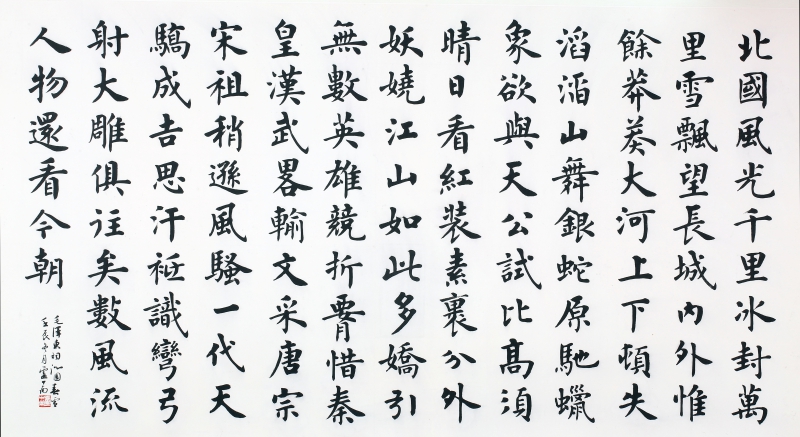 北國風光千里冰封萬
里雪飄望長城內外惟
餘莽莽大河上下頓失
滔滔山舞銀蛇原馳蠟
象欲與天公試比髙須
晴日看紅裝素裹分外
妖嬈江山如此多嬌引
無數英雄競折腰惜秦
皇漢武畧輸文采唐宗
宋祖稍遜風騷一代天
驕成吉思汗祗識彎弓
射大雕俱往矣數風流
人物還看今朝
毛澤東詞沁園春雪
壬辰冬月